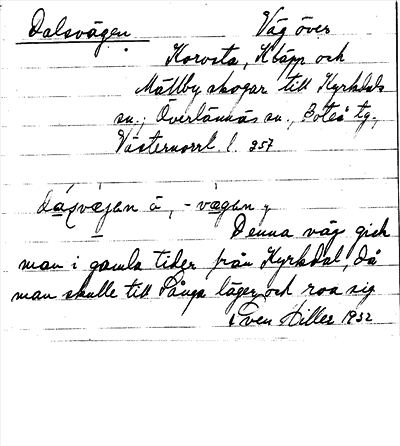 Dalsvägen Väg över
Korvsta, Kläpp och
Mällby skogar till Kyrkdals
sn., Överlännäs sn., Boteå tg.,
Västernorrl. l. 357
-vägen,
Denna väg gick
man i gamla tider från Kyrkdal, då
man skulle till Sånga läger och roa sig
Sven Hiller 1932